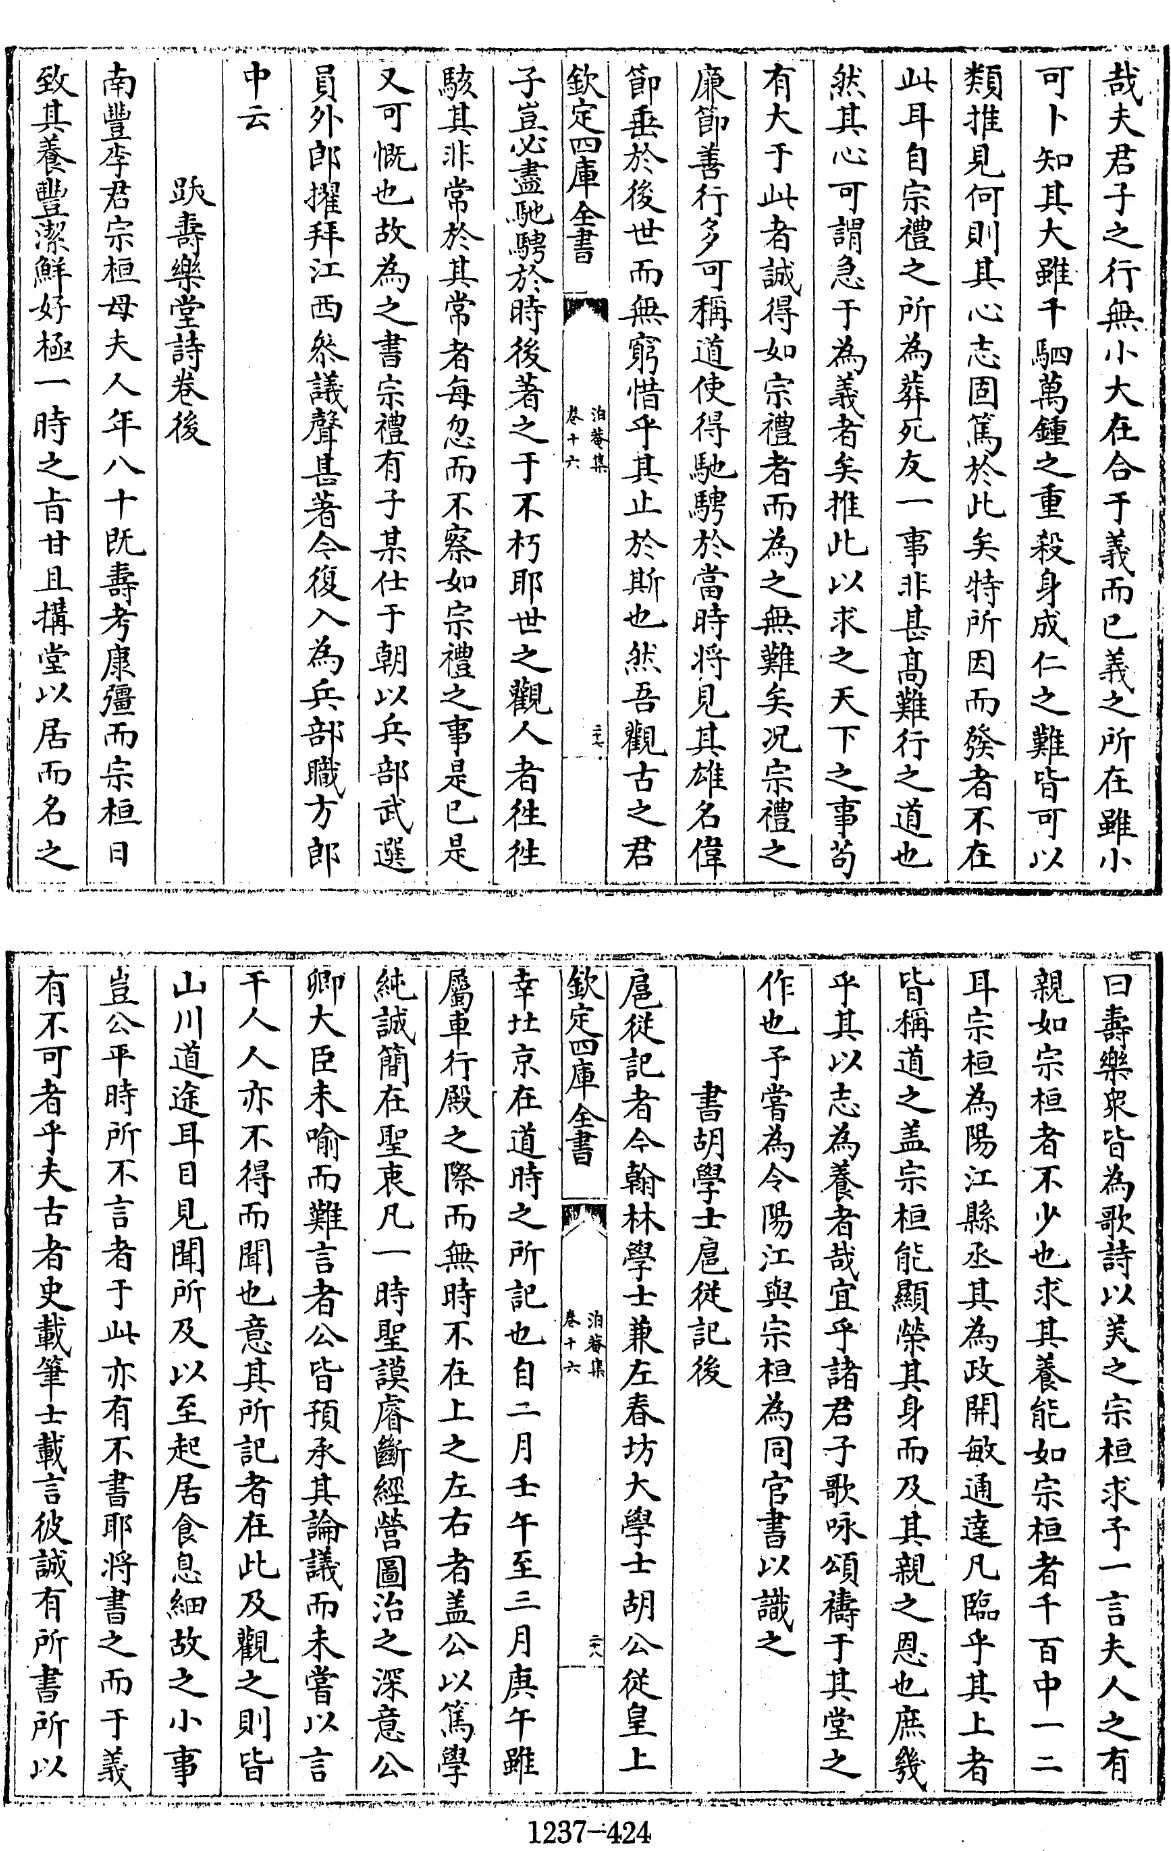 哉夫君子之行無小大在合于義而已義之所在雖小
可卜知其大雖千駟萬鍾之重殺身成仁之難皆可以
類推見何則其心志固篤於此矣特所因而發者不在
此耳自宗禮之所為葬死友一事非甚髙難行之道也
然其心可謂急于為義者矣推此以求之天下之事茍
有大于此者誠得如宗禮者而為之無難矣况宗禮之
廉節善行多可稱道使得馳騁於當時將見其雄名偉
節垂於後世而無窮惜乎其止於斯也然吾觀古之君
欽定四庫全書
泊菴集
卷十六
二十七
子豈必盡馳騁於時後著之于不朽耶世之觀人者徃徃
駭其非常於其常者每忽而不察如宗禮之事是已是
又可慨也故為之書宗禮有子某仕于朝以兵部武選
員外郎擢拜江西叅議聲甚著今復入為兵部職方郎
中云
跋壽樂堂詩卷後
南豐李君宗桓母夫人年八十既壽考康彊而宗桓日
致其養豐潔鮮好極一時之㫖甘且搆堂以居而名之
曰壽樂衆皆為歌詩以美之宗桓求予一言夫人之有
親如宗桓者不少也求其養能如宗桓者千百中一二
耳宗桓為陽江縣丞其為政開敏通達凡臨乎其上者
皆稱道之盖宗桓能顯榮其身而及其親之恩也庶幾
乎其以志為養者哉宜乎諸君子歌咏頌禱于其堂之
作也予嘗為令陽江與宗桓為同官書以識之
書胡學士扈從記後
扈從記者今翰林學士兼左春坊大學士胡公從皇上
欽定四庫全書
泊菴集
卷十六
二十八
幸北京在道時之所記也自二月壬午至三月庚午雖
屬車行殿之際而無時不在上之左右者盖公以篤學
純誠簡在聖衷凡一時聖謨睿斷經營圖治之深意公
卿大臣未喻而難言者公皆預承其論議而未嘗以言
干人人亦不得而聞也意其所記者在此及觀之則皆
山川道途耳目見聞所及以至起居食息細故之小事
豈公平時所不言者于此亦有不書耶將書之而于義
有不可者乎夫古者史載筆士載言彼誠有所書所以
1237-424